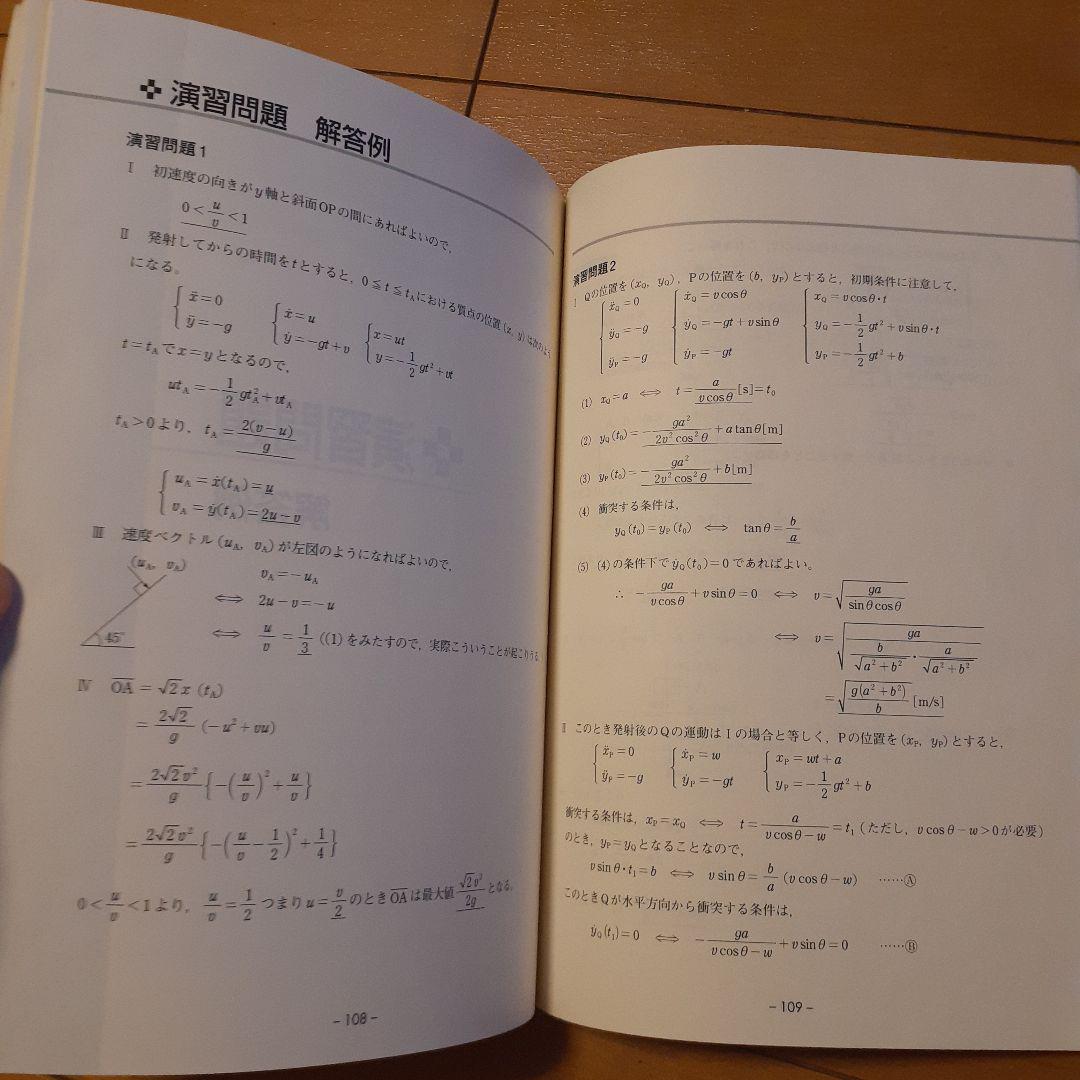 演習問題 解答例
演習問題1
Ⅰ 初速度の向きがy軸と斜面OPの間にあればよいので，
0<u/v<1
Ⅱ 発射してからの時間をtとすると，0≦t≦t_Aにおける質点の位置(x, y)は次のよう
になる。
{ẍ=0 {ẋ=u {x=ut
{ÿ=-g {ẏ=-gt+v {y=-1/2 gt²+vt
t=t_Aでx=yとなるので，
ut_A=-1/2 gt_A²+vt_A
t_A>0より，t_A=2(v-u)/g
{u_A=ẋ(t_A)=u
{v_A=ẏ(t_A)=2u-v
Ⅲ 速度ベクトル(u_A, v_A)が左図のようになればよいので，
(u_A, v_A)
45°
v_A=-u_A
⇔ 2u-v=-u
⇔ u/v=1/3 ((1)をみたすので，実際こういうことが起こりうる。
Ⅳ OA=√2x(t_A)
=2√2/g (-u²+vu)
=2√2v²/g {-(u/v)²+u/v}
=2√2v²/g {-(u/v-1/2)²+1/4}
0<u/v<1より，u/v=1/2 つまりu=v/2のときOAは最大値√2v²/2gとなる。
-108-
演習問題2
Ⅰ Qの位置を(x_Q, y_Q)，Pの位置を(b, y_P)とすると，初期条件に注意して，
{ẍ_Q=0 {ẋ_Q=vcosθ {x_Q=vcosθ·t
{ÿ_Q=-g {ẏ_Q=-gt+vsinθ {y_Q=-1/2 gt²+vsinθ·t
{ÿ_P=-g {ẏ_P=-gt {y_P=-1/2 gt²+b
(1) x_Q=a ⇔ t=a/(vcosθ)[s]=t₀
(2) y_Q(t₀)=-ga²/(2v²cos²θ)+atanθ[m]
(3) y_P(t₀)=-ga²/(2v²cos²θ)+b[m]
(4) 衝突する条件は，
y_Q(t₀)=y_P(t₀) ⇔ tanθ=b/a
(5) (4)の条件下でẏ_Q(t₀)=0であればよい。
∴ -ga/(vcosθ)+vsinθ=0 ⇔ v=√(ga/(sinθcosθ))
⇔ v=√(ga/(b/√(a²+b²)·a/√(a²+b²)))
=√(g(a²+b²)/b)[m/s]
Ⅱ このとき発射後のQの運動はⅠの場合と等しく，Pの位置を(x_P, y_P)とすると，
{ẍ_P=0 {ẋ_P=w {x_P=wt+a
{ÿ_P=-g {ẏ_P=-gt {y_P=-1/2 gt²+b
衝突する条件は，x_P=x_Q ⇔ t=a/(vcosθ-w)=t₁(ただし，vcosθ-w>0が必要)
のとき，y_P=y_Qとなることなので，
vsinθ·t₁=b ⇔ vsinθ=b/a(vcosθ-w) ……Ⓐ
このときQが水平方向から衝突する条件は，
ẏ_Q(t₁)=0 ⇔ -ga/(vcosθ-w)+vsinθ=0 ……Ⓑ
-109-